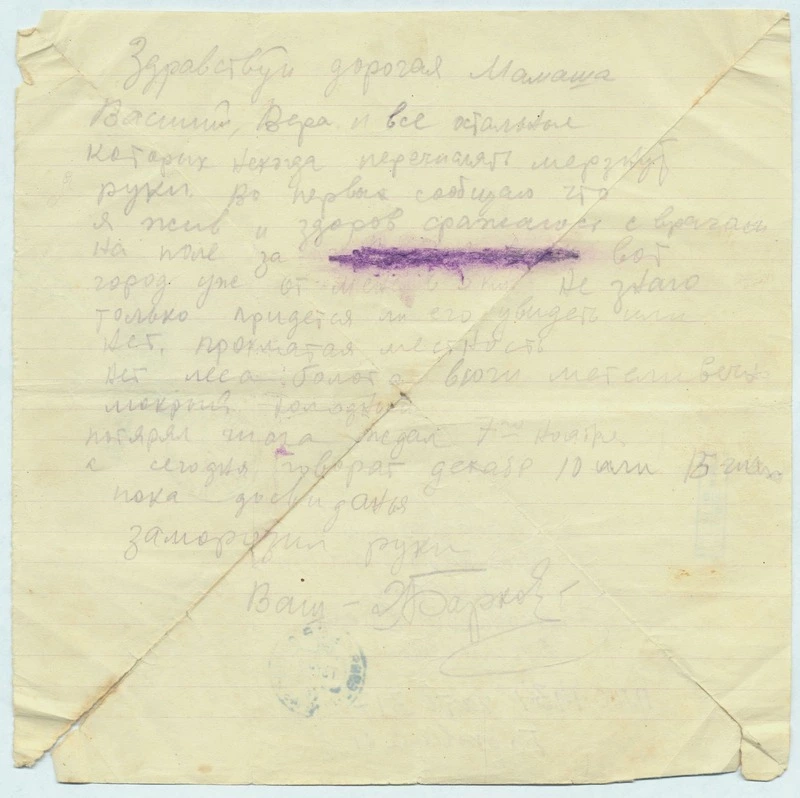 Здравствуй дорогая Мамаша
Василий, Вера и все остальные
которых некогда перечислять мерзнут
руки. Во первых сообщаю что
я жив и здоров сражаюсь с врагам
на поле за вот
город уже от Не знаю
только придется ли его увидеть или
нет, проклятая местность
нет леса болота вюги метели вечн
мокрый холодный
потярял числа ждал 7го Ноября.
а сегодня говорат декабр 10 или 15 числ.
пока досвиданья
заморозил руки
Ваш -